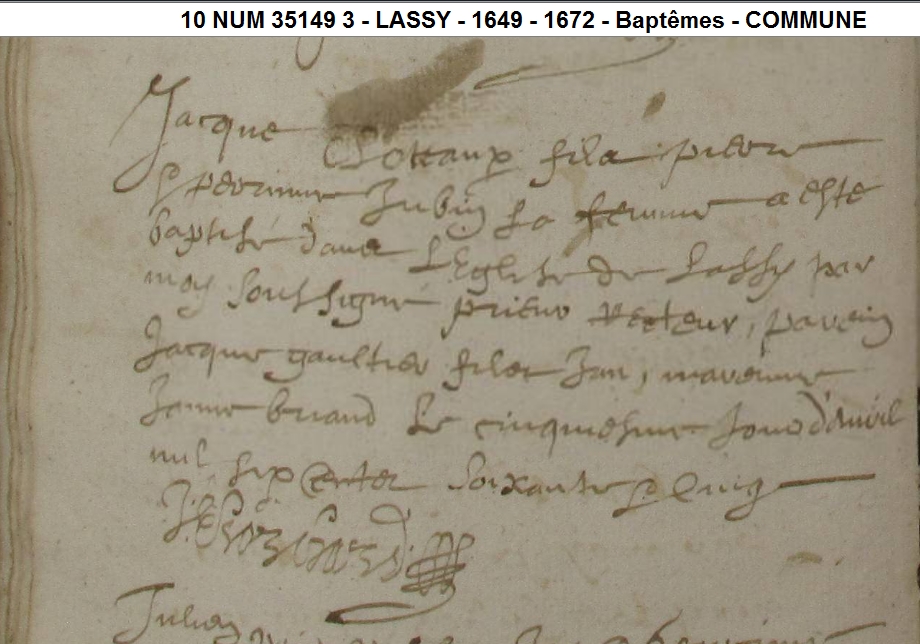 10 NUM 35149 3 - LASSY - 1649 - 1672 - Baptêmes - COMMUNE
Jacque
fils pierre
& perrinne Jubin sa femme a este
baptisé dans L'Eglise de Lassy par
moy soussigné prieur Recteur, parein
Jacque gaultier fils Jan, marenne
Janne briand Le cinquiesme Jour d'Avril
mil six Centes soixante & Cinq
Julien